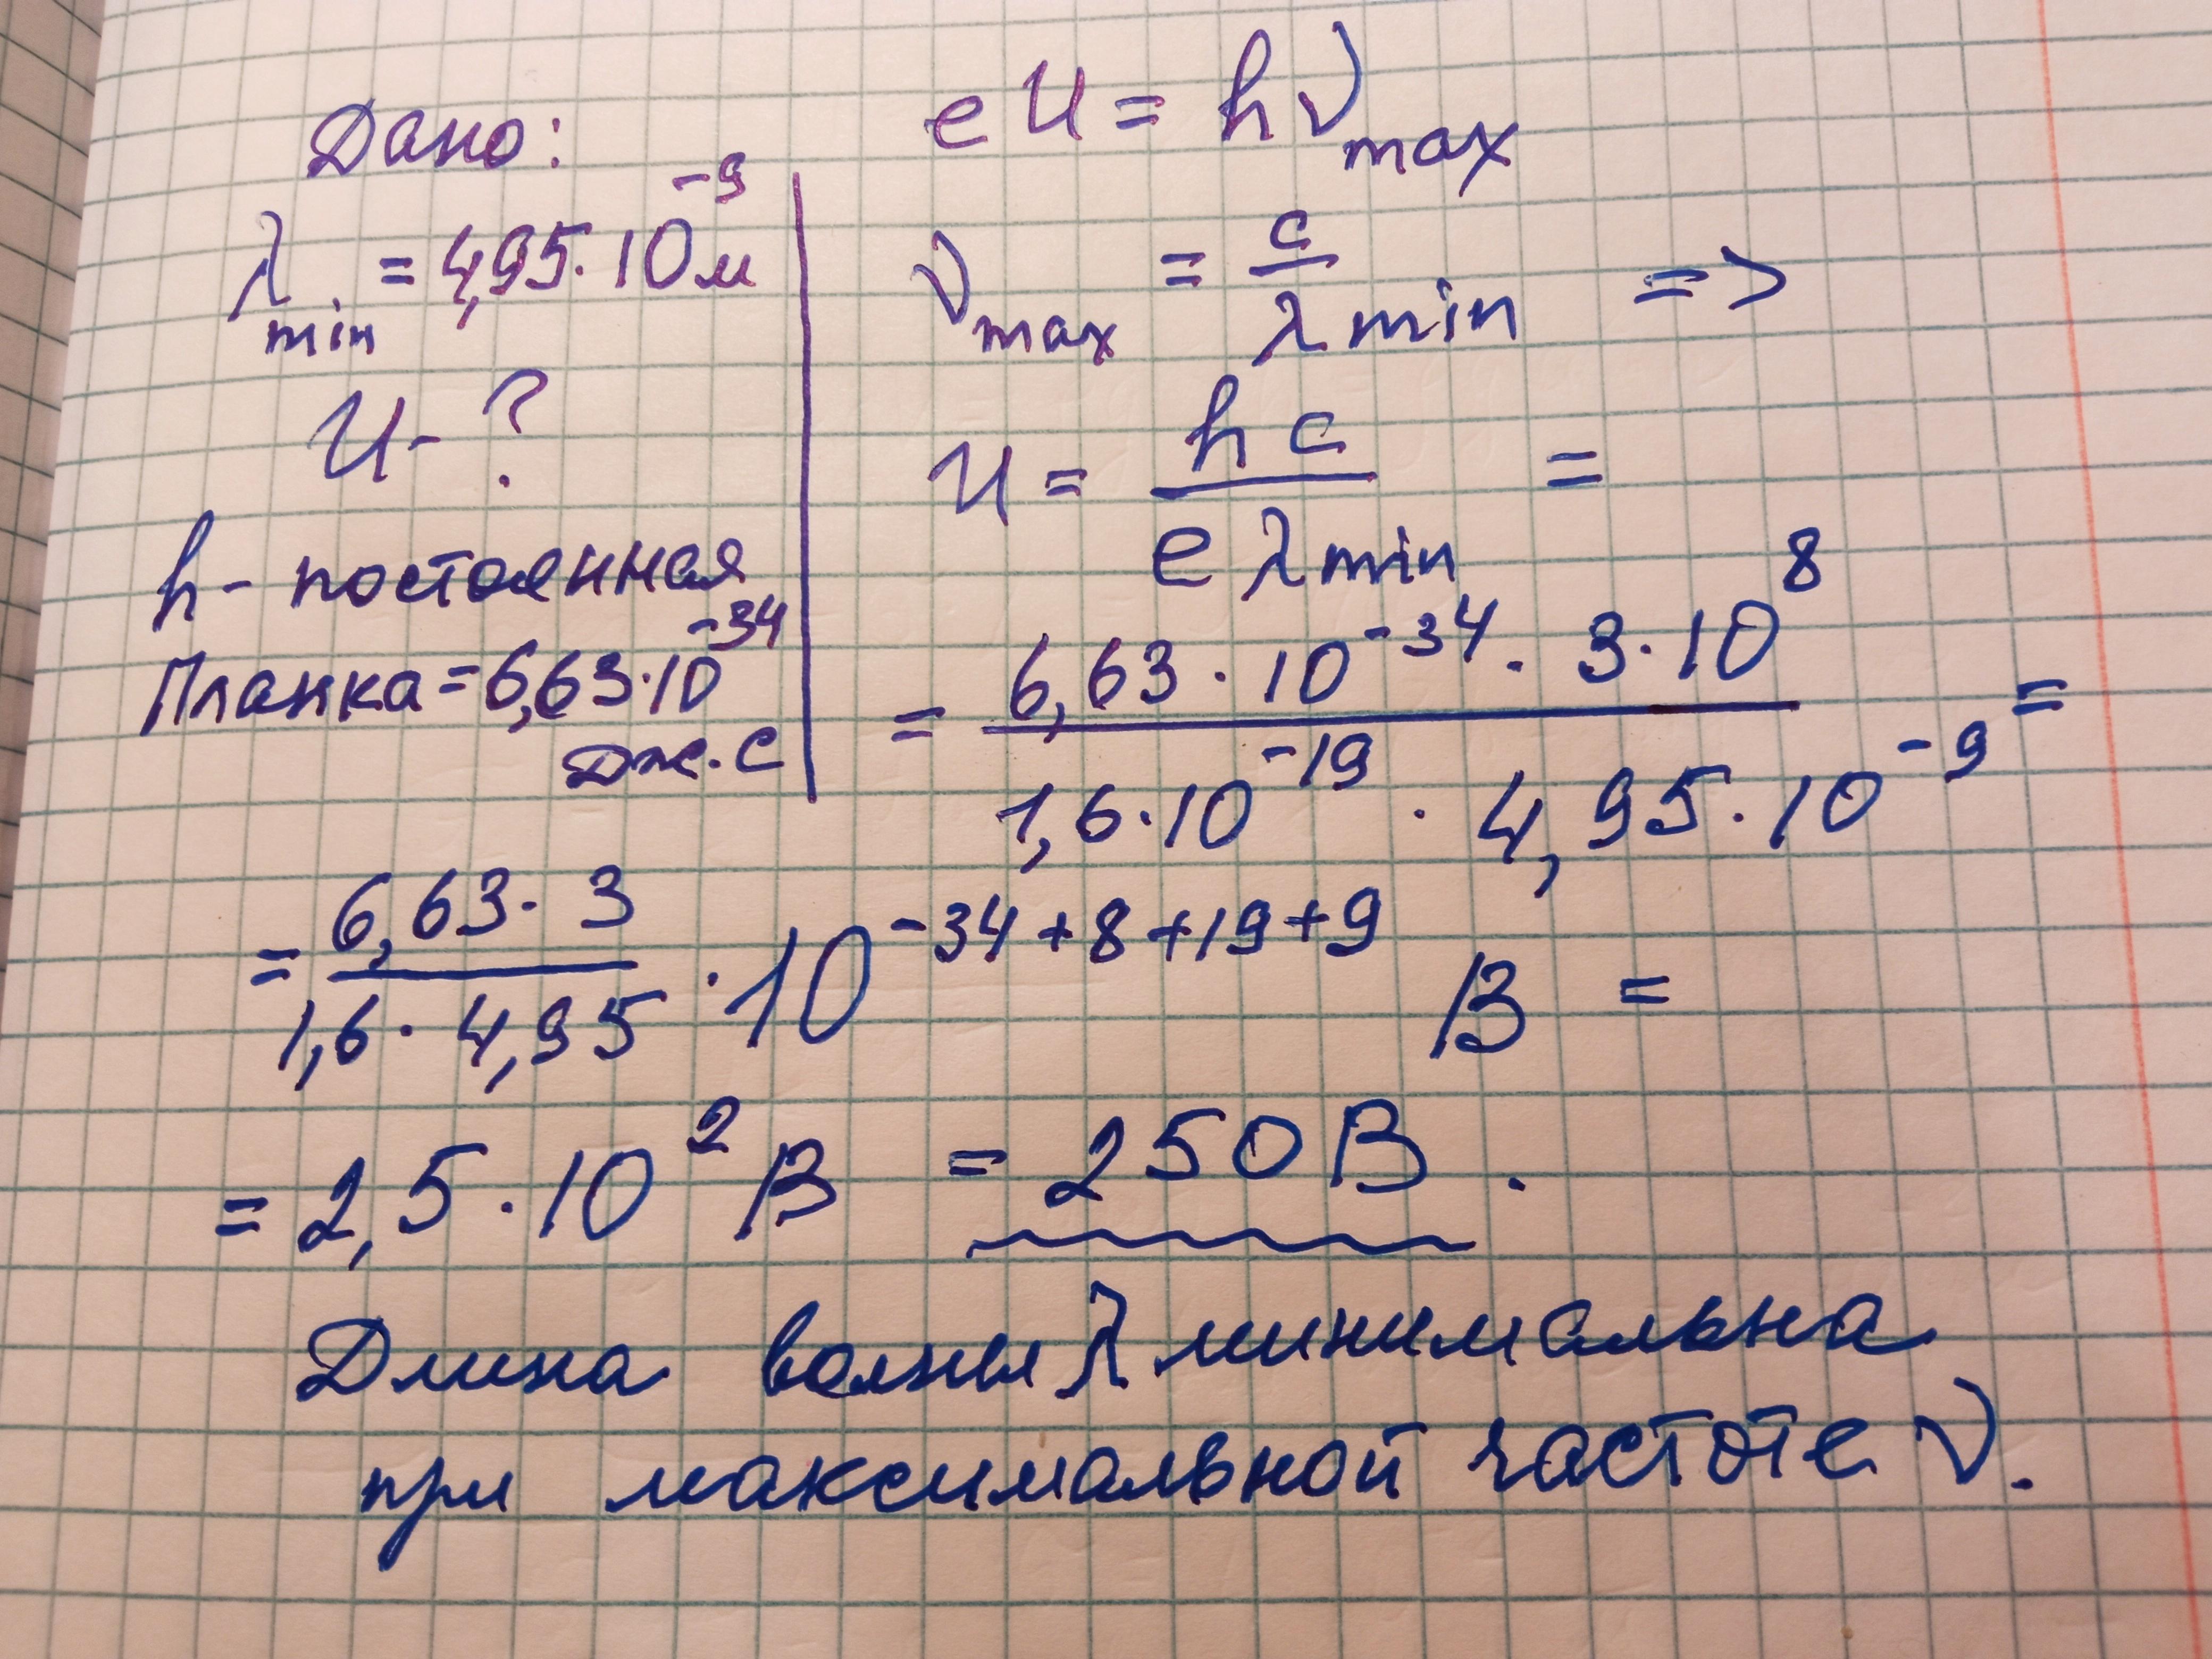 Дано:
λmin = 4,95·10⁻⁹ м
U - ?
h - постоянная
Планка = 6,63·10⁻³⁴
Дж·с
eU = hνmax
νmax = c/λmin =>
U = hc/eλmin =
= 6,63·10⁻³⁴·3·10⁸/1,6·10⁻¹⁹·4,95·10⁻⁹ =
= 6,63·3/1,6·4,95 · 10⁻³⁴⁺⁸⁺¹⁹⁺⁹ В =
= 2,5·10² В = 250 В.
Длина волны λ минимальна
при максимальной частоте ν.